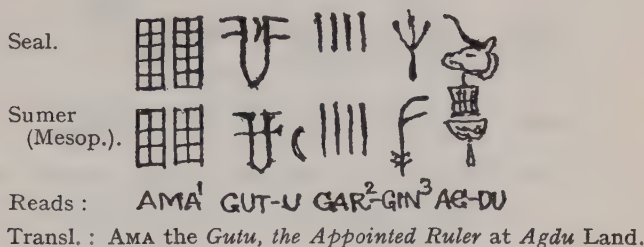 Seal.
Sumer
(Mesop.).
Reads : AMA¹ GUT-U GAR²-GIN³ AG-DU
Transl. : AMA the Gutu, the Appointed Ruler at Agdu Land